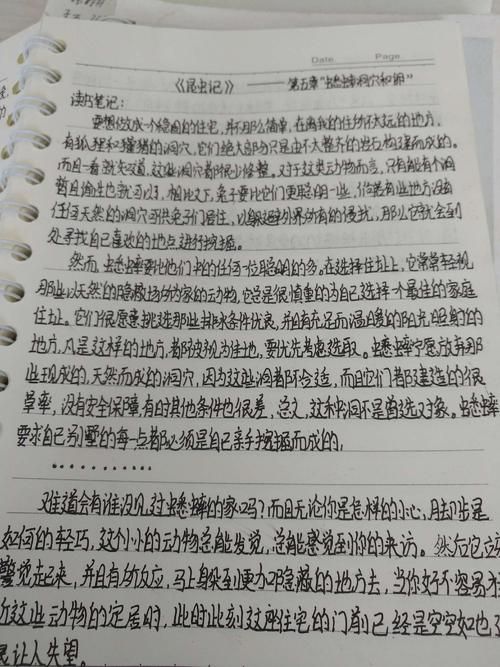 Date. Page.
《昆虫记》 —— 第五章"蟋蟀洞穴和卵"
读书笔记:
要想做成一个稳固的住宅,并不那么简单,在离我的住所不太远的地方,
有狐狸和獾猪的洞穴,它们绝大部分只是由不太整齐的岩石构建而成的。
而且一看就知道,这些洞穴都很少修整。对于这类动物而言,只有能有个洞
暂且偷生也就可以了,相比之下,兔子要比它们更聪明一些,你若有些地方没有
任何天然的洞穴可供兔子们居住,以躲避外界所有的侵扰,那么它就会到
处寻找自己喜欢的地点进行挖掘。
然而,蟋蟀要比他们中的任何一位聪明的多。在选择住址上,它常常轻视
那些以天然的隐蔽场所为家的动物,它总是很慎重的为自己选择一个最佳的家庭
住址。它们很愿意挑选那些排水条件优良,并且有充足而温暖的阳光照射的
地方,凡是这样的地方,都被视为佳地,要优先考虑选取。蟋蟀宁愿放弃那
些现成的,天然而成的洞穴,因为这些洞都不合适,而且它们都建造的很
草率,没有安全保障,有时其他条件也很差,总之,这种洞不是首选对象。蟋蟀
要求自己别墅的每一点都必须是自己亲手挖掘而成的,
············
难道会有谁没见过蟋蟀的家吗?而且无论你是怎样的小心,脚步是
如何的轻巧,这个小小的动物总能发觉,总能感觉到你的来访。然后它立
警觉起来,并且有所反应,马上躲到更加隐藏的地方去,当你好不容易才
近这些动物的定居时,此时此刻这座住宅的门前已经是空空如也了
是让人失望。